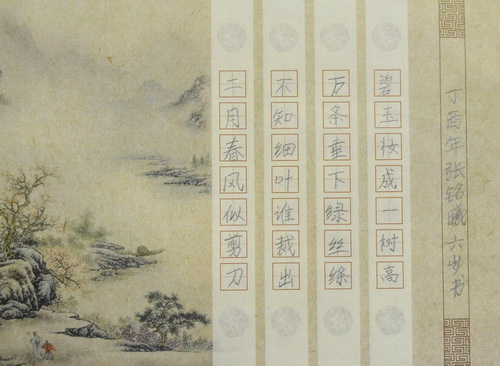 丁酉年张铭六岁书
碧玉妆成一树高
万条垂下绿丝绦
不知细叶谁裁出
二月春风似剪刀